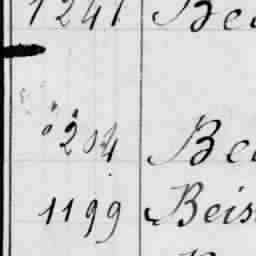 1241 Be
204 Be
1199 Beis